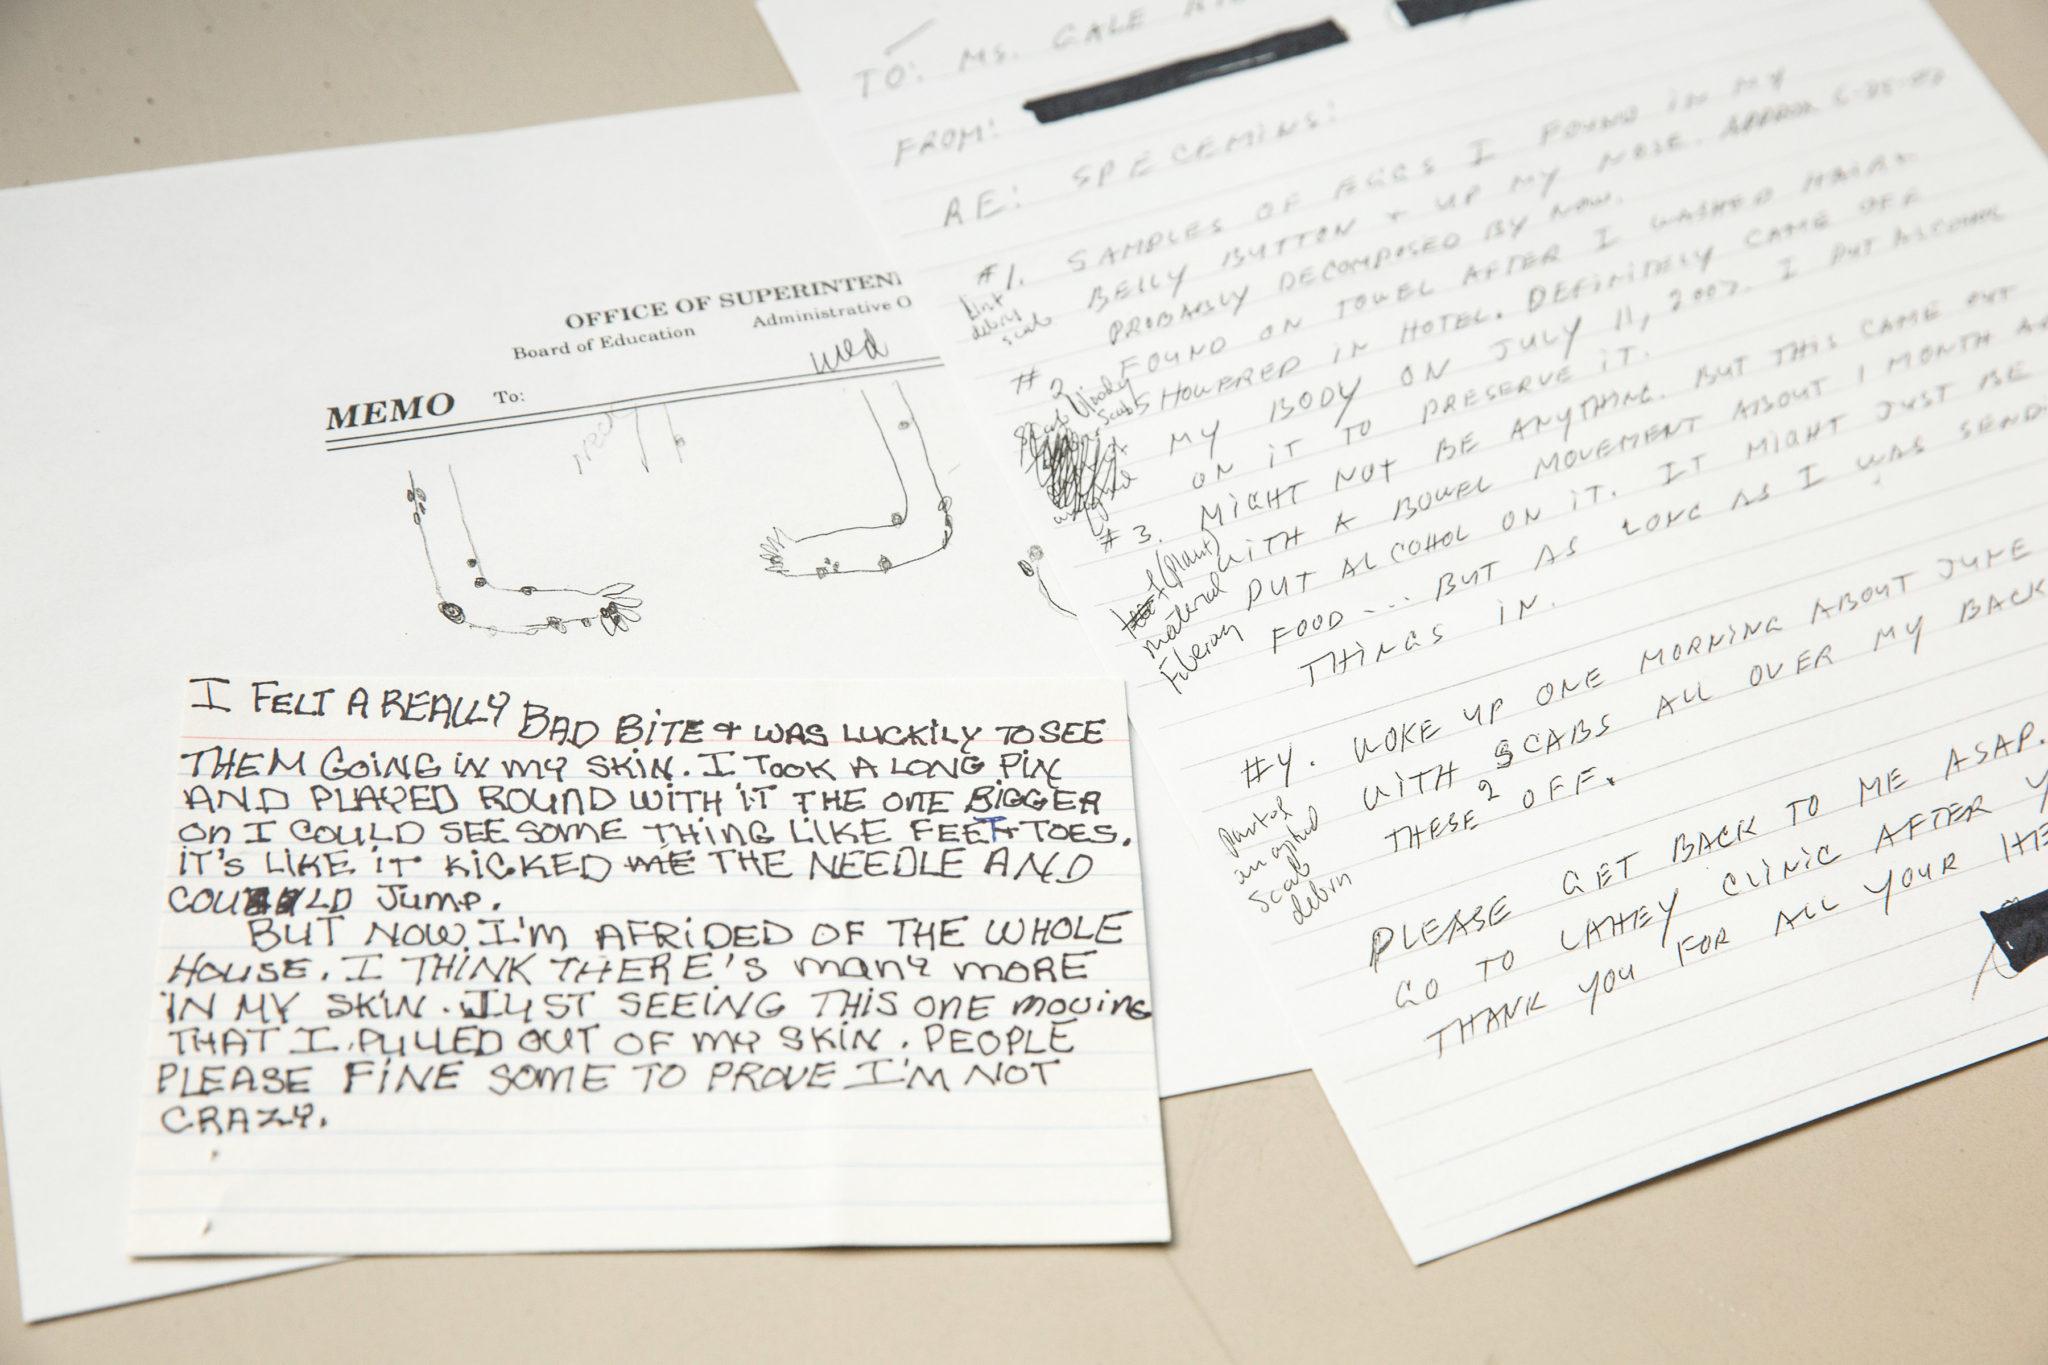 OFFICE OF SUPERINTEN
Board of Education Administrative O
MEMO To:
wed
I FELT A REALLY BAD BITE + WAS LUCKILY TO SEE
THEM GOING IN MY SKIN. I TOOK A LONG PIN
AND PLAYED ROUND WITH IT THE ONE BIGGER
ON I COULD SEE SOME THING LIKE FEET + TOES.
IT'S LIKE IT KICKED ME THE NEEDLE AND
COULD JUMP.
BUT NOW I'M AFRIDED OF THE WHOLE
HOUSE. I THINK THERE'S MANY MORE
IN MY SKIN. JUST SEEING THIS ONE MOVING
THAT I PULLED OUT OF MY SKIN. PEOPLE
PLEASE FINE SOME TO PROVE I'M NOT
CRAZY.
TO: MS. GALE
FROM:
RE: SPECEMINS:
#1. SAMPLES OF EGGS I FOUND IN MY
BELLY BUTTON + UP MY NOSE. APPROX
PROBABLY DECOMPOSED BY NOW.
Lint
debris
scab
#2 FOUND ON TOWEL AFTER I WASHED HAIR +
SHOWERED IN HOTEL. DEFINITELY CAME OFF
MY BODY ON JULY 11, 2007. I PUT ALCOHOL
ON IT TO PRESERVE IT.
Bloody
scab
#3. MIGHT NOT BE ANYTHING. BUT THIS CAME OUT
WITH A BOWEL MOVEMENT ABOUT 1 MONTH A
PUT ALCOHOL ON IT. IT MIGHT JUST BE
FOOD... BUT AS LONG AS I WAS SEND
THINGS IN.
(plant)
material
#4. WOKE UP ONE MORNING ABOUT JUNE
WITH SCABS ALL OVER MY BACK
THESE 2 OFF.
Part of
scab
debris
PLEASE GET BACK TO ME ASAP.
GO TO LAHEY CLINIC AFTER Y
THANK YOU FOR ALL YOUR HE